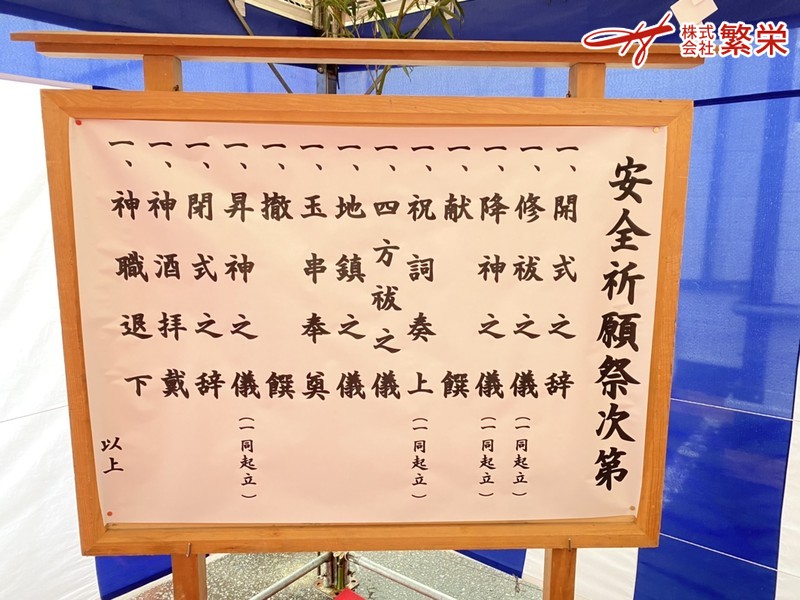 株式
会社
繁栄
安全祈願祭次第
一、開式之辞
一、修祓之儀（一同起立）
一、降神之儀（一同起立）
一、献饌
一、祝詞奏上（一同起立）
一、四方祓之儀
一、地鎮之儀
一、玉串奉奠
一、撤饌
一、昇神之儀（一同起立）
一、閉式之辞
一、神酒拝戴
一、神職退下
以上